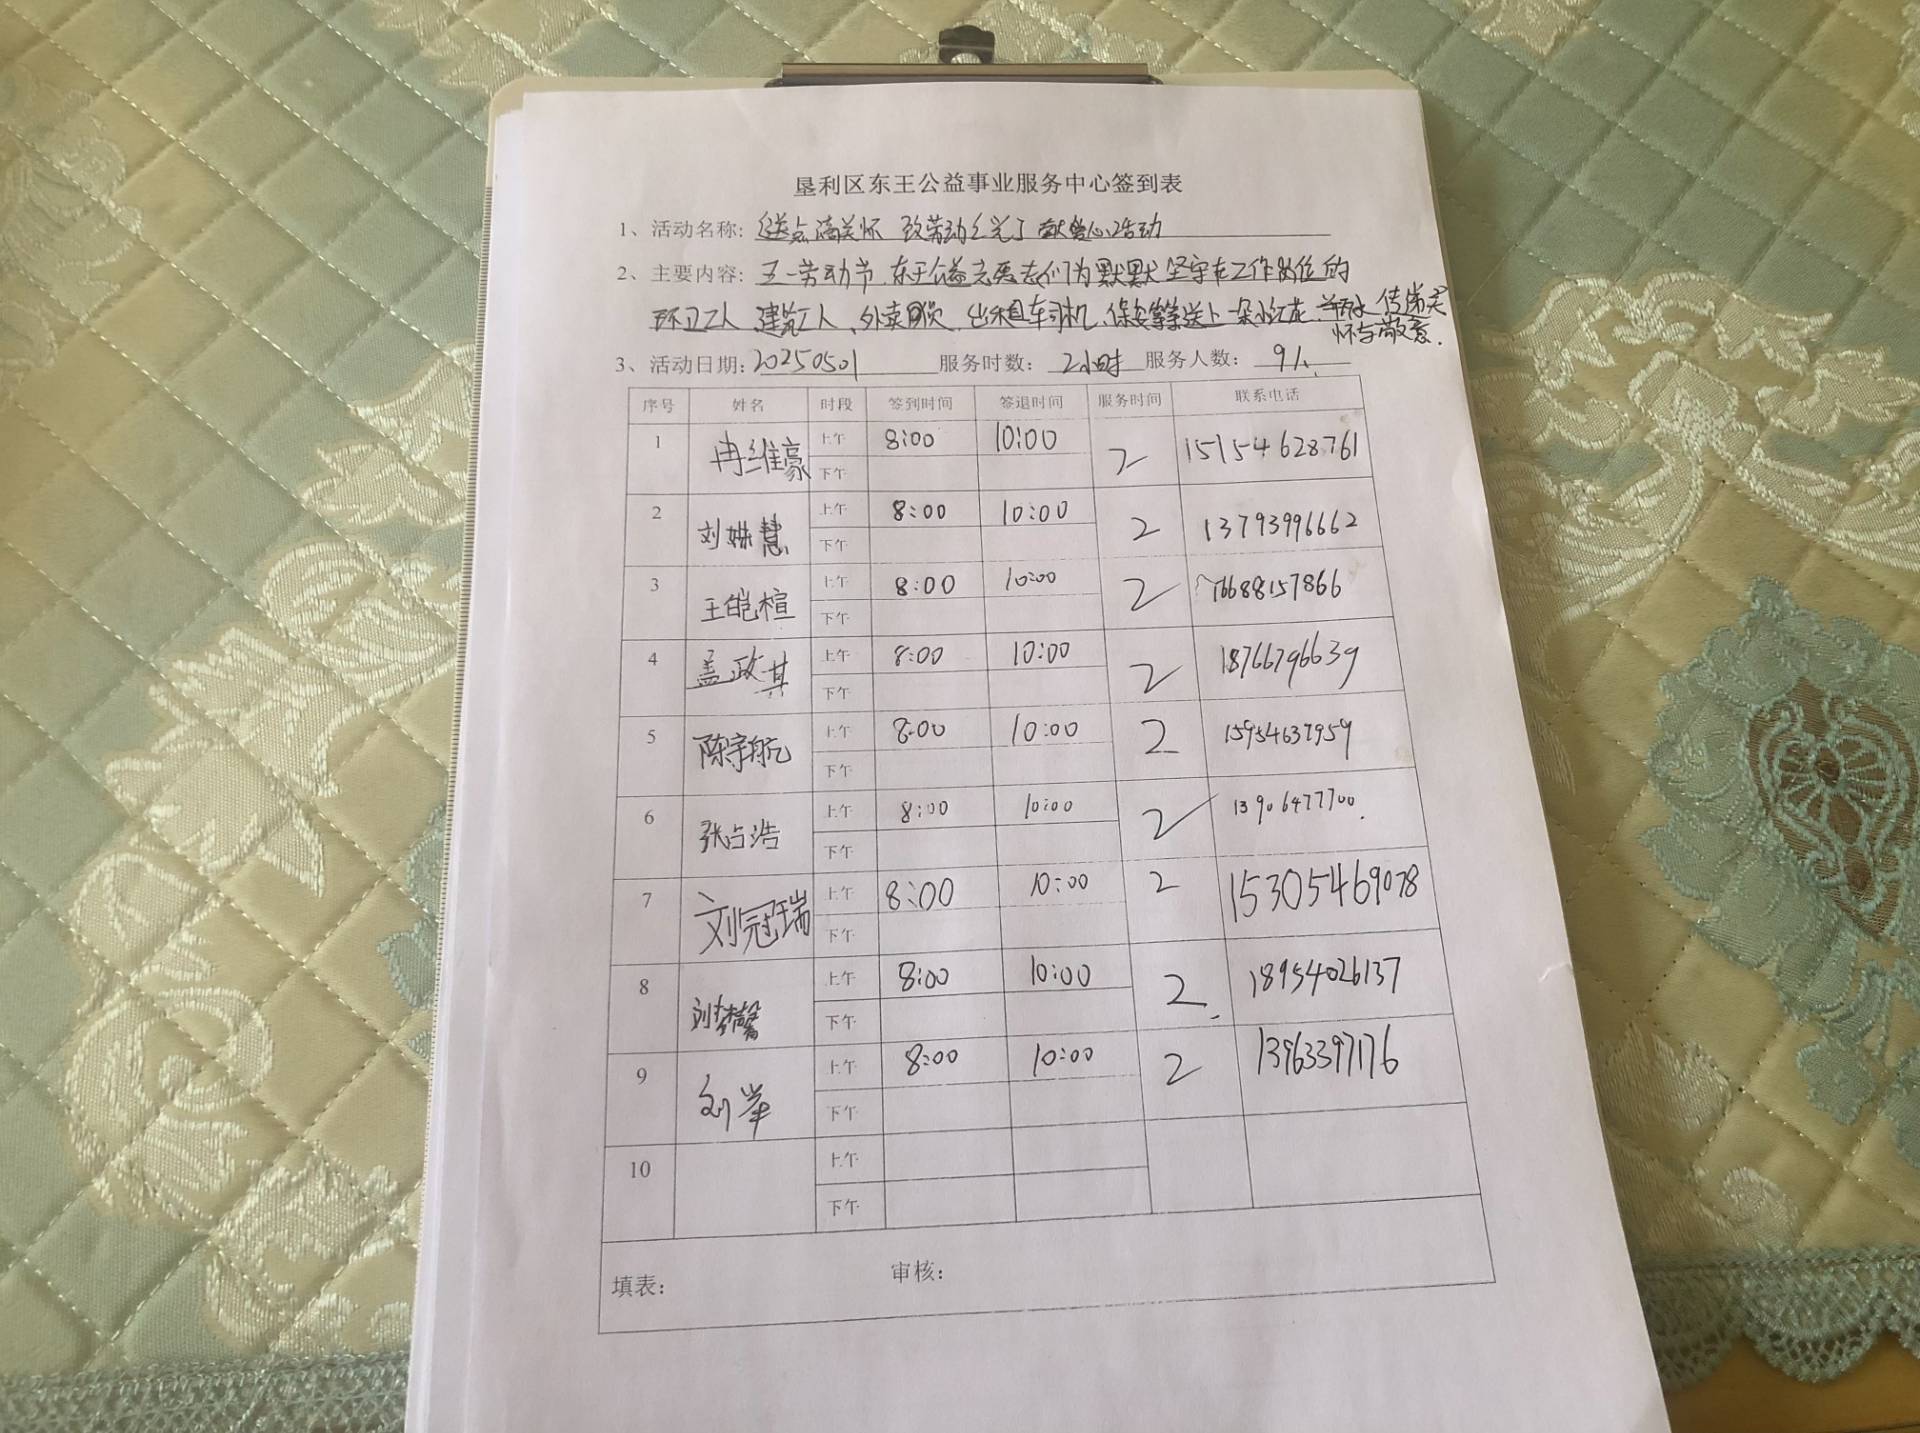 垦利区东王公益事业服务中心签到表
1、活动名称: 送点滴关怀 致劳动之光 献爱心活动
2、主要内容: 五一劳动节,东王公益志愿者们为默默坚守在工作岗位的
环卫工人、建筑工人、外卖员、出租车司机、保安等送上一朵小红花, 传递关
怀与敬意.
3、活动日期: 20250501 服务时数: 2小时 服务人数: 9人
序号 姓名 时段 签到时间 签退时间 服务时间 联系电话
1 冉维豪 上午 8:00 10:00 2 15154628761
下午
2 刘姝慧 上午 8:00 10:00 2 13793996662
下午
3 王皑楦 上午 8:00 10:00 2 16688157866
下午
4 盖政其 上午 8:00 10:00 2 18766796639
下午
5 陈宇航 上午 8:00 10:00 2 15954637959
下午
6 张占浩 上午 8:00 10:00 2 13906477700
下午
7 刘冠瑞 上午 8:00 10:00 2 15305469078
下午
8 刘梦馨 上午 8:00 10:00 2 18954026137
下午
9 刘举 上午 8:00 10:00 2 13963397176
下午
10 上午
下午
填表: 审核: